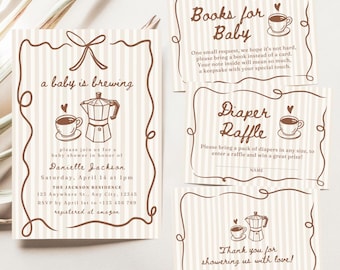 a baby is brewing
please join us for a
baby shower in honor of
Danielle Jackson
Saturday, April 16 at 1pm
THE JACKSON RESIDENCE
123 Anywhere St., Any City, 12345
RSVP by April 1 to +123 456 789
registered at amazon
Books for
Baby
One small request, we hope it's not hard,
please bring a book instead of a card.
Your note inside will mean so much,
a keepsake with your special touch.
Diaper
Raffle
Please bring a pack of diapers in any size, to
enter a raffle and win a great prize!
NAME
Thank you for
showering us with love!